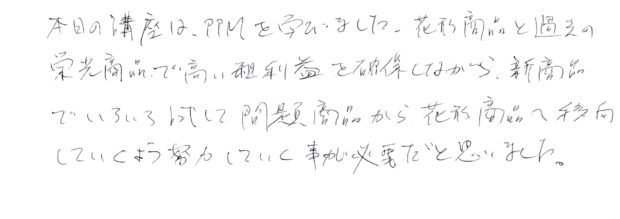 本日の講座は、PPMを学びました。花形商品と過去の
栄光商品で高い粗利益を確保しながら、新商品
でいろいろ試して問題商品から花形商品へ移向
していくよう努力していく事が必要だと思いました。